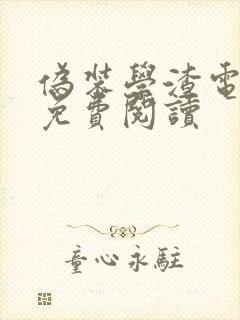 偽裝學渣電
免費閱讀
童心永駐